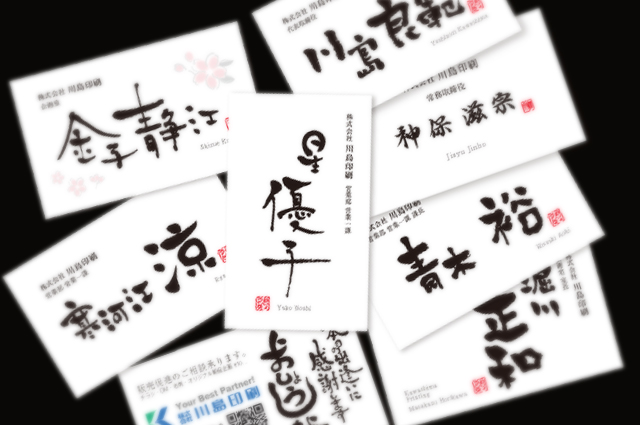 株式会社 川島印刷
代表取締役
川島良範
株式会社 川島印刷
企画室
金子静江
株式会社 川島印刷
常務取締役
神保滋宗
Jisyu Jinbo
株式会社 川島印刷
営業部 営業一課
星優子
Yuko Hoshi
株式会社 川島印刷
営業部 営業一課 課長
青木裕
株式会社 川島印刷
営業部 営業一課
寒河江涼
堀川正和
Masakazu Horikawa
販売促進のご相談承ります。
Your Best Partner!
川島印刷
感謝します